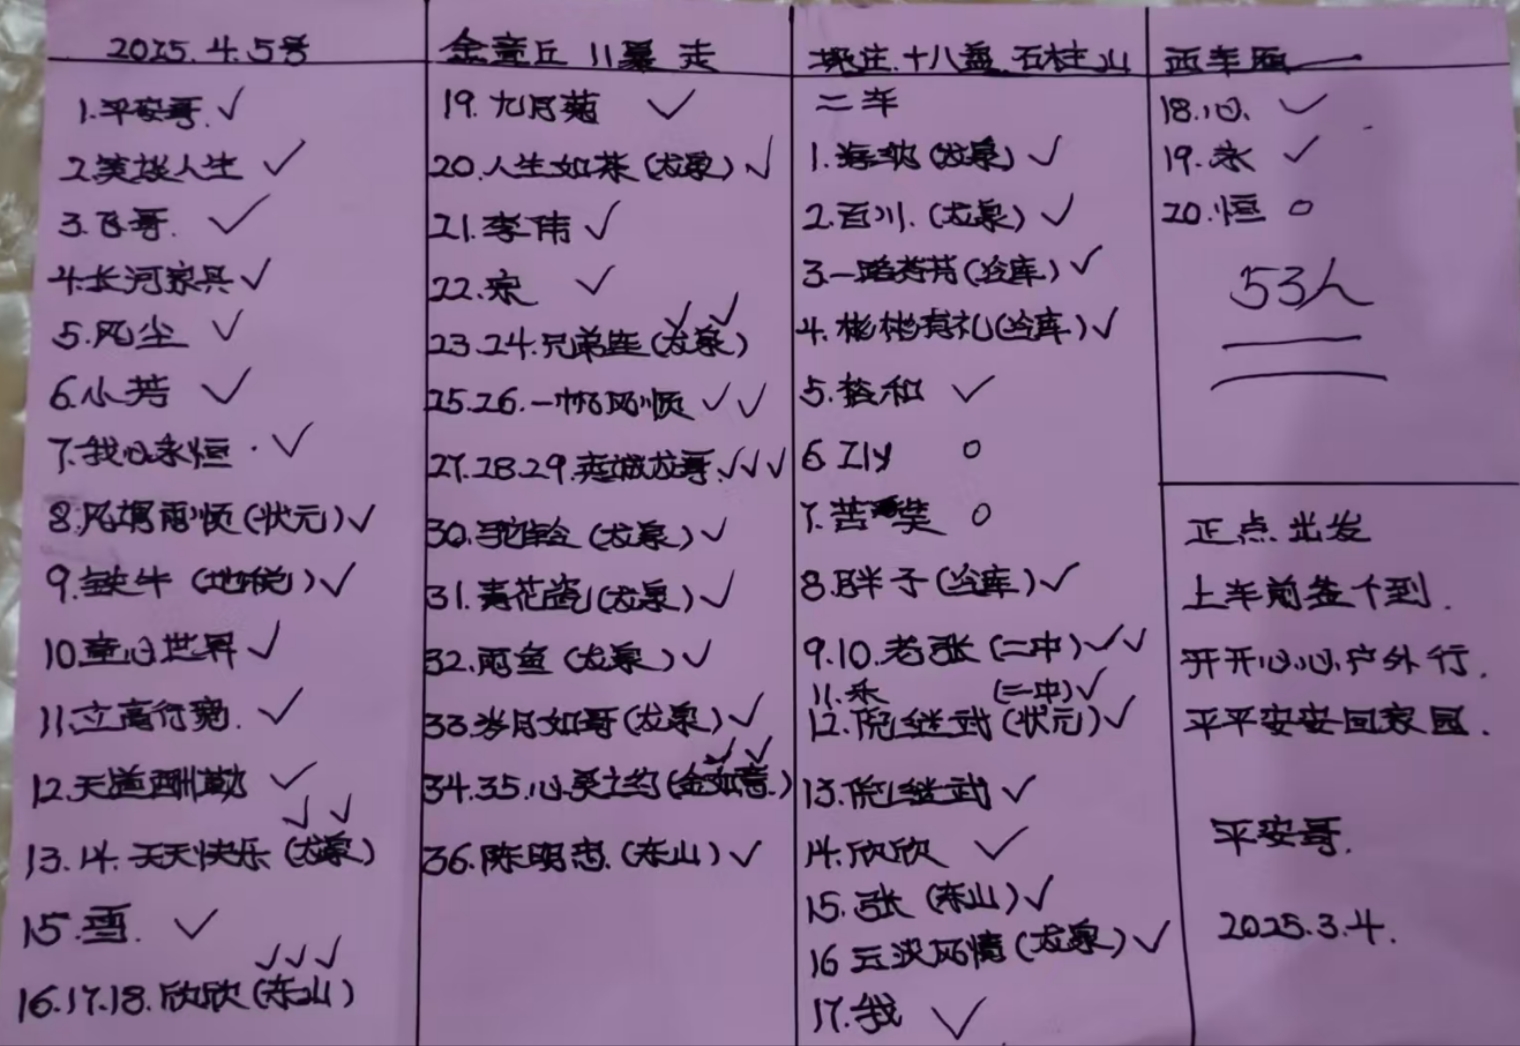 2025.4.5号
1.平安哥.✓
2.笑谈人生 ✓
3.飞哥. ✓
4.长河家具✓
5.风尘 ✓
6.小芳 ✓
7.我心永恒.✓
8.风调雨顺(状元)✓
9.铁牛(地税)✓
10童心世界✓
11.立高行宽.✓
12.天道酬勤 ✓
✓✓
13.14.天天快乐(龙泉)
15.雪. ✓
✓✓✓
16.17.18.欣欣(东山)
金章丘 11暴走
19.九月菊 ✓
20.人生如茶(龙泉)✓
21.李伟✓
22.宋 ✓
✓✓
23.24.兄弟连(龙泉)
25.26.一帆风顺✓✓
27.28.29.龙哥.✓✓✓
30.驼铃(龙泉)✓
31.青花瓷(龙泉)✓
32.雨鱼(龙泉)✓
33.岁月如哥(龙泉)✓
✓✓
34.35.心灵之约(金如意.)
36.陈明忠.(东山)✓
垛庄.十八盘.石柱山
二车
1.海纳(龙泉)✓
2.百川.(龙泉)✓
3.一路芬芳(冷库)✓
4.彬彬有礼(冷库)✓
5.和 ✓
6.Zly o
7.苦笑 o
8.胖子(冷库)✓
9.10.老张(二中)✓✓
11. (二中)✓
12.继武(状元)✓
13.继武✓
14.欣欣 ✓
15.张(东山)✓
16云淡风情(龙泉)✓
17.我 ✓
西车
18.心. ✓
19.永 ✓
20.恒 o
53人
正点出发
上车前签个到.
开开心心户外行.
平平安安回家园.
平安哥.
2025.3.4.